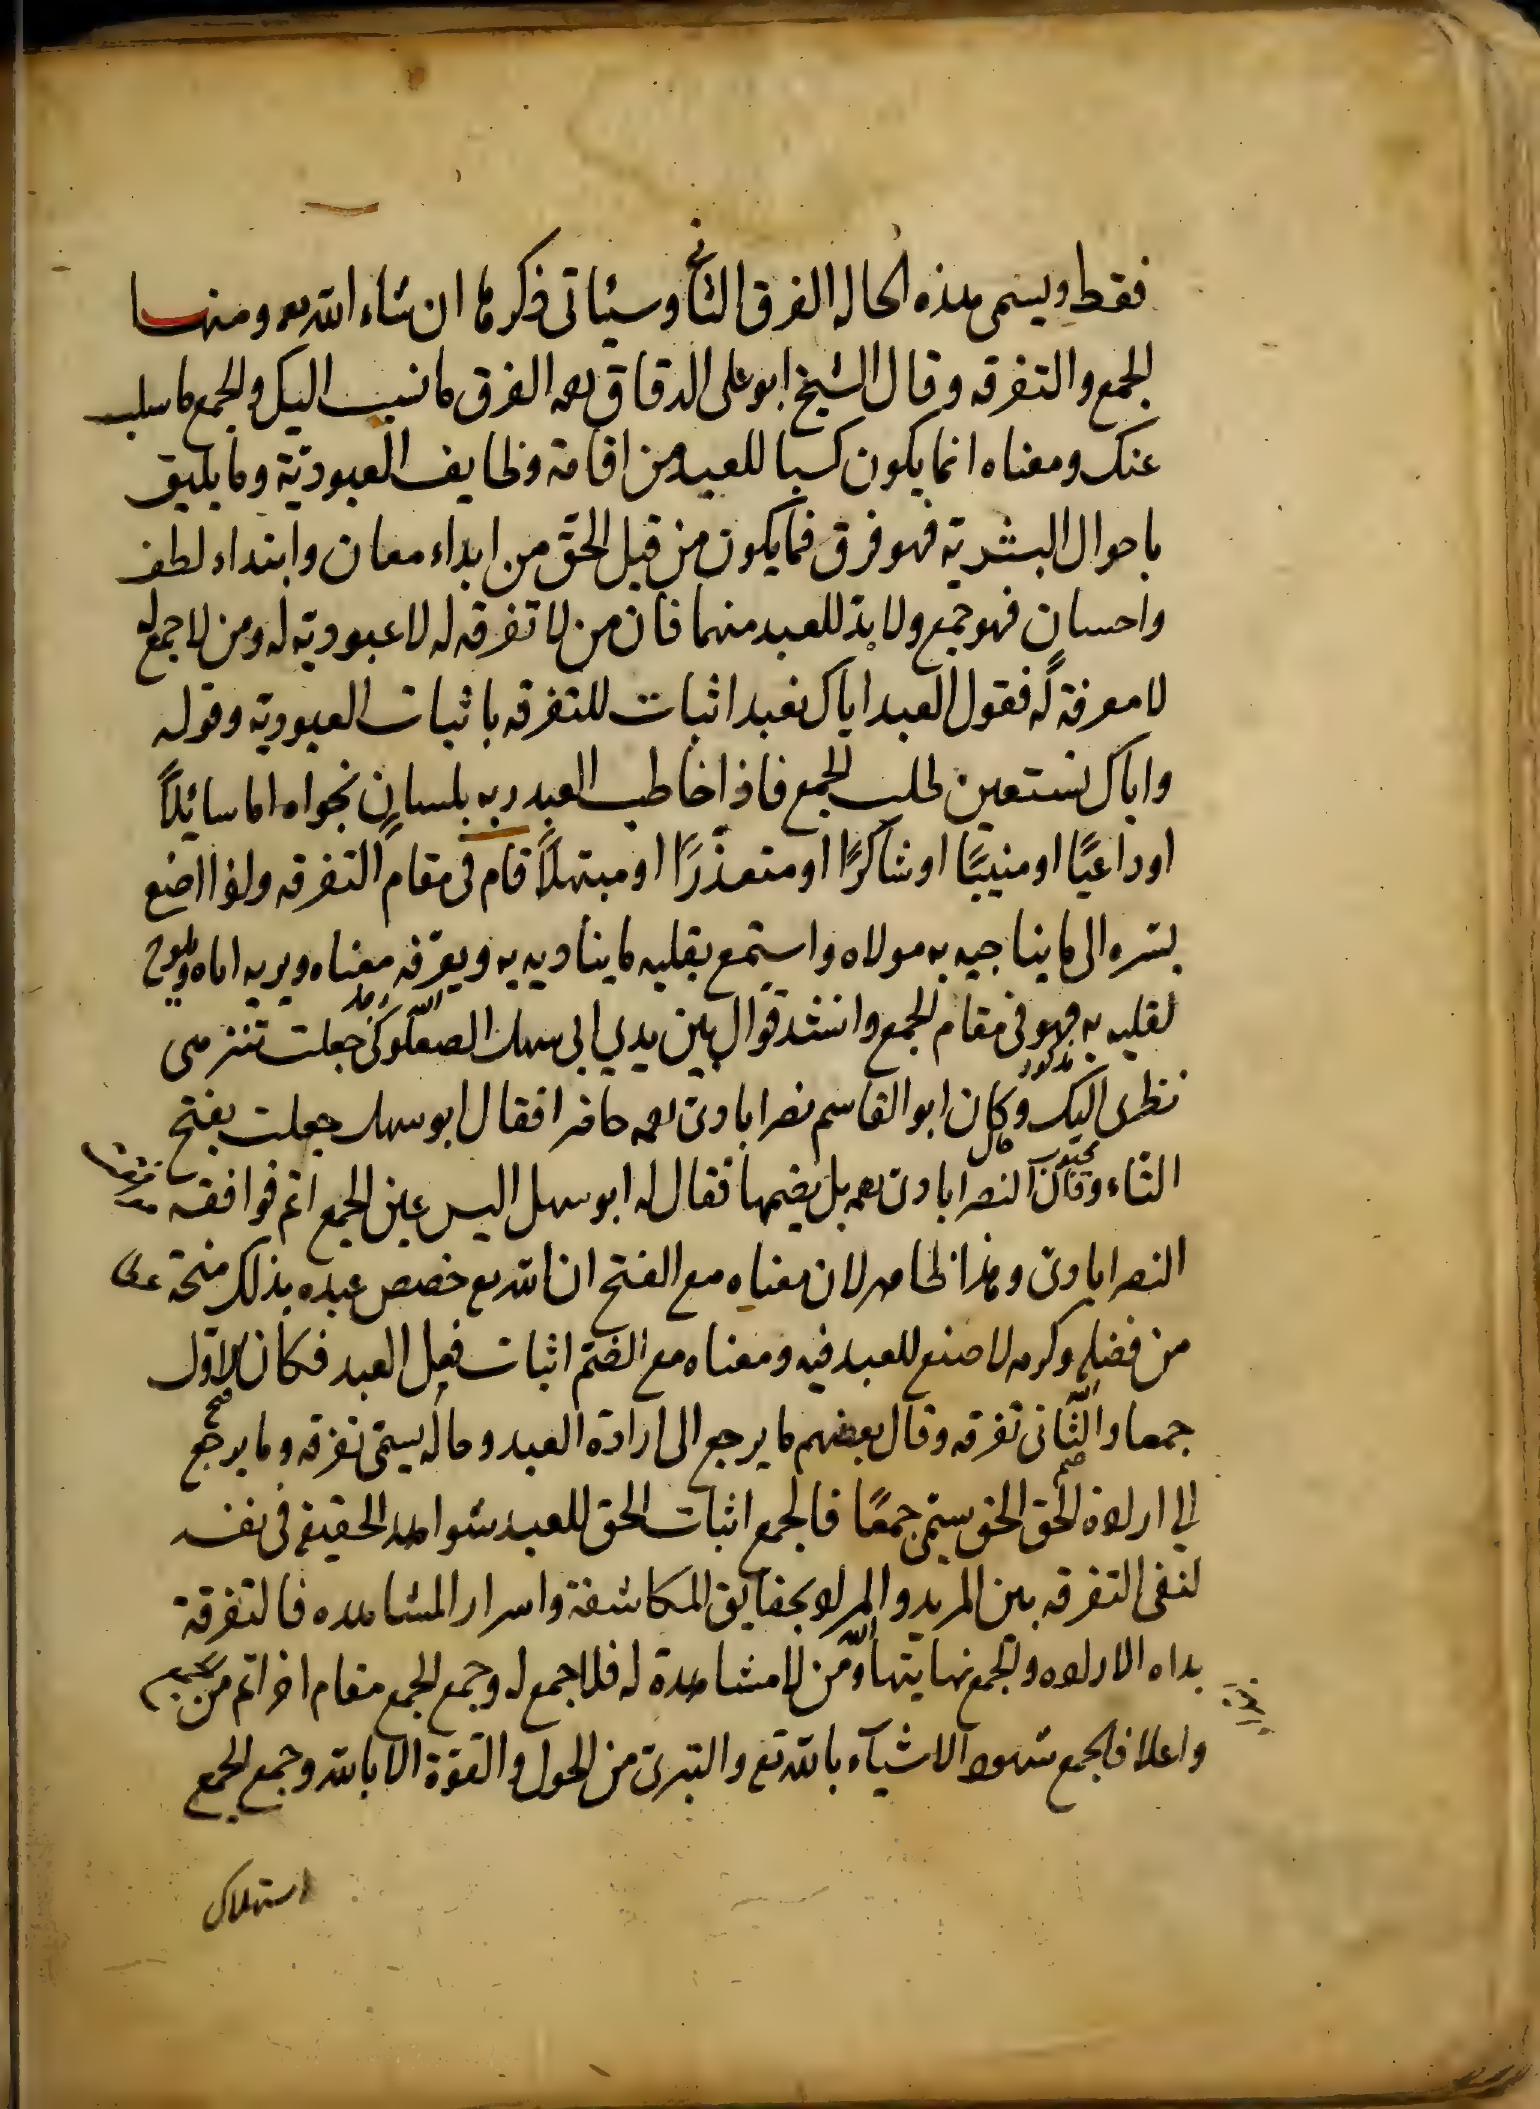 فقط ويسمى هذه الحاله الفرق الثانى وسيئاتى ذكرها ان شاء الله تعو ومنها
الجمع والتفرقه وقال الشيخ ابو على الدقاق رحمه الفرق ما نسب اليك والجمع ما سلب
عنك ومعناه انما يكون كسبا للعبد من اقامة وظايف العبوديّة وما يليق
باحوال البشريه فهو فرق فما يكون من قبل الحقّ من ابداء معان وابتداء لطف
واحسان فهو جمع ولا بدّ للعبد منهما فان من لا تفرقه له لا عبوديّه له ومن لا جمع له
لا معرفة له فقول العبد اياك نعبد اثبات للتفرقه باثبات العبوديّه وقوله
واياك نستعين طلب الجمع فاذا خاطب العبد ربه بلسان نجواه اما سائيلاً
او داعيًا او منيبًا او شاكرًا او متعذّرًا او مبتهلاً قام فى مقام التفرقه ولو اصغى
بسّره الى ما يناجيه به مولاه واستمع بقلبه ما يناديه به ويعرّفه معناه ويريه اياه ويلوح
لقلبه به فهو فى مقام الجمع وانشد قوال بين يدي ابى سهل الصعلوكى جعلت تنزهى
نظرى اليك وكان ابو القاسم نصراباذى رحمه حاضرا فقال ابو سهل جعلت بفتح
التّاء وقال النصراباذى رحمه بل بضمها فقال له ابو سهل اليس عين الجمع اتم فوافقه
النصراباذى وهذا ظاهر لان معناه مع الفتح ان الله تع خصص عبده بذلك منحة
من فضله وكرمه لا صنع للعبد فيه ومعناه مع الضّم اثبات فعل العبد فكان الاوّل
جمعا والثّانى تفرقه وقال بعضهم ما يرجع الى ارادة العبد وحاله يسمّى تفرقه وما يرجع
الى ارادة الحق الحق يسمّى جمعًا فالجمع اثبات الحق للعبد شواهد الحقيقه فى نفسه
لنفى التفرقه بين المريد والمراد بحقايق المكاشفة واسرار المشاهده فالتفرقة
بداه الاراده والجمع نهايتها ومن لا مشاهدة له فلا جمع له وجمع الجمع مقام اخر اتم من
واعلا فالجمع شهود الاشيآء بالله تع والتبرى من الحول والقوّة الا بالله وجمع الجمع
استهلاك